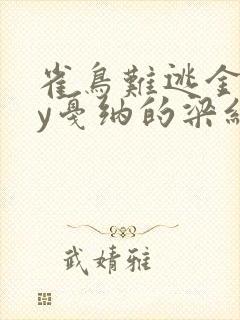 雀鳥難逃金
y戛纳的梁
武婧雅